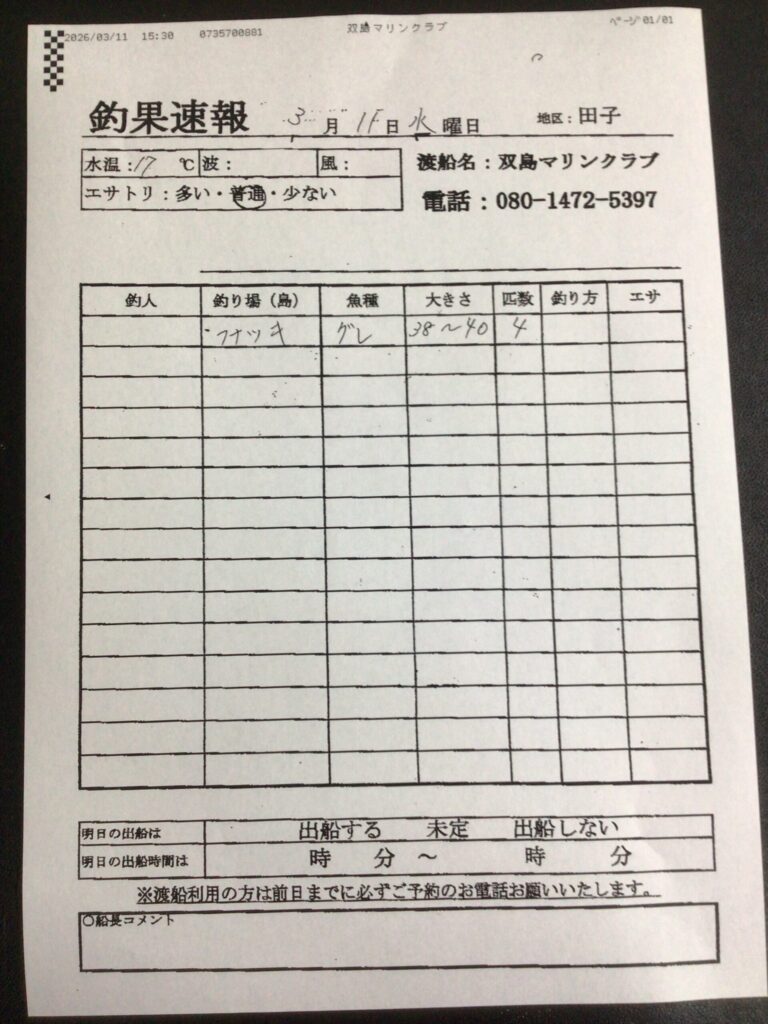 2026/03/11 15:30 0735700881 双島マリンクラブ ページ 01/01
釣果速報 3月 11日 水曜日 地区：田子
水温：17 ℃ 波： 風： 渡船名：双島マリンクラブ
エサトリ：多い・普通・少ない 電話：080-1472-5397
釣人 釣り場（島） 魚種 大きさ 匹数 釣り方 エサ
フナツキ グレ 38～40 4
明日の出船は 出船する 未定 出船しない
明日の出船時間は 時 分 ～ 時 分
※渡船利用の方は前日までに必ずご予約のお電話お願いいたします。
○船長コメント